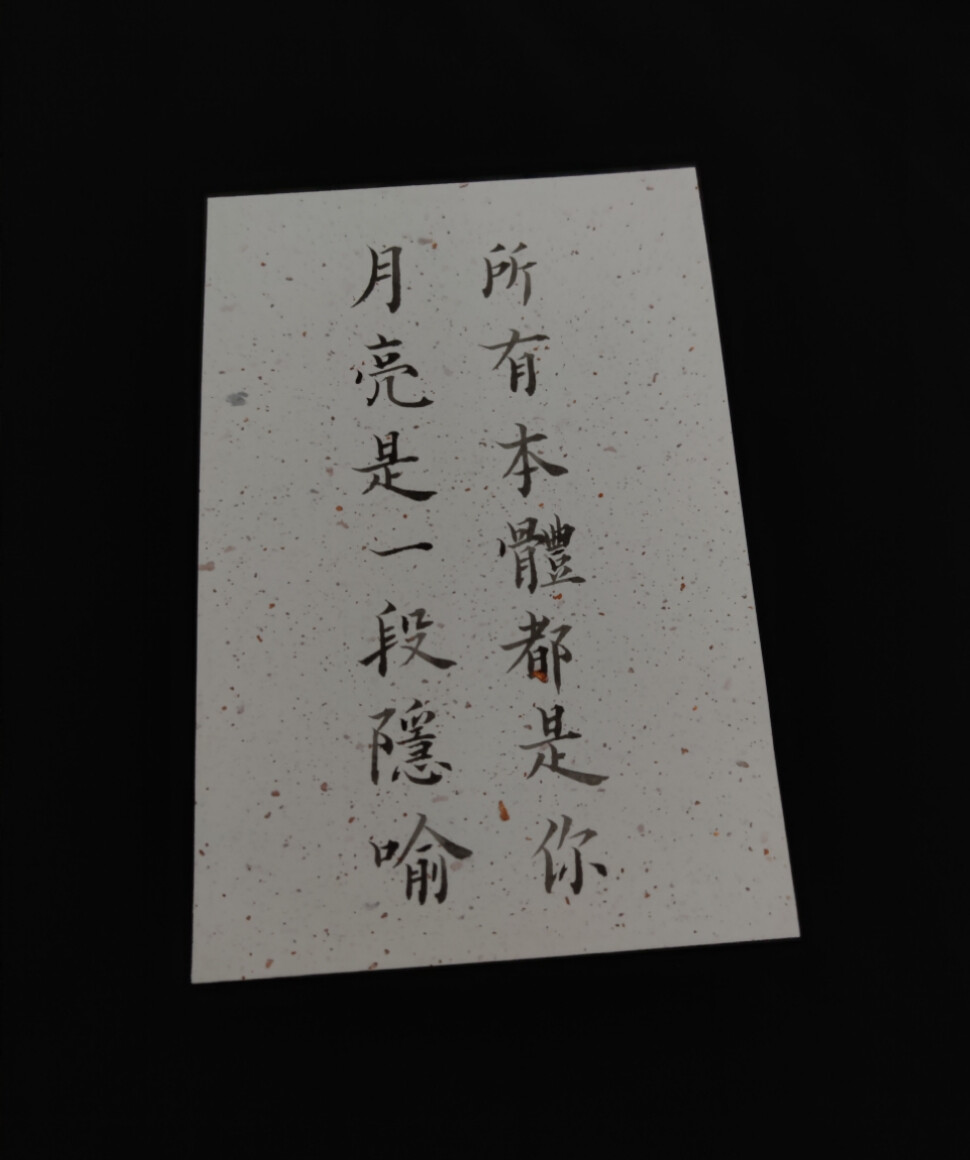 所有本體都是你
月亮是一段隱喻